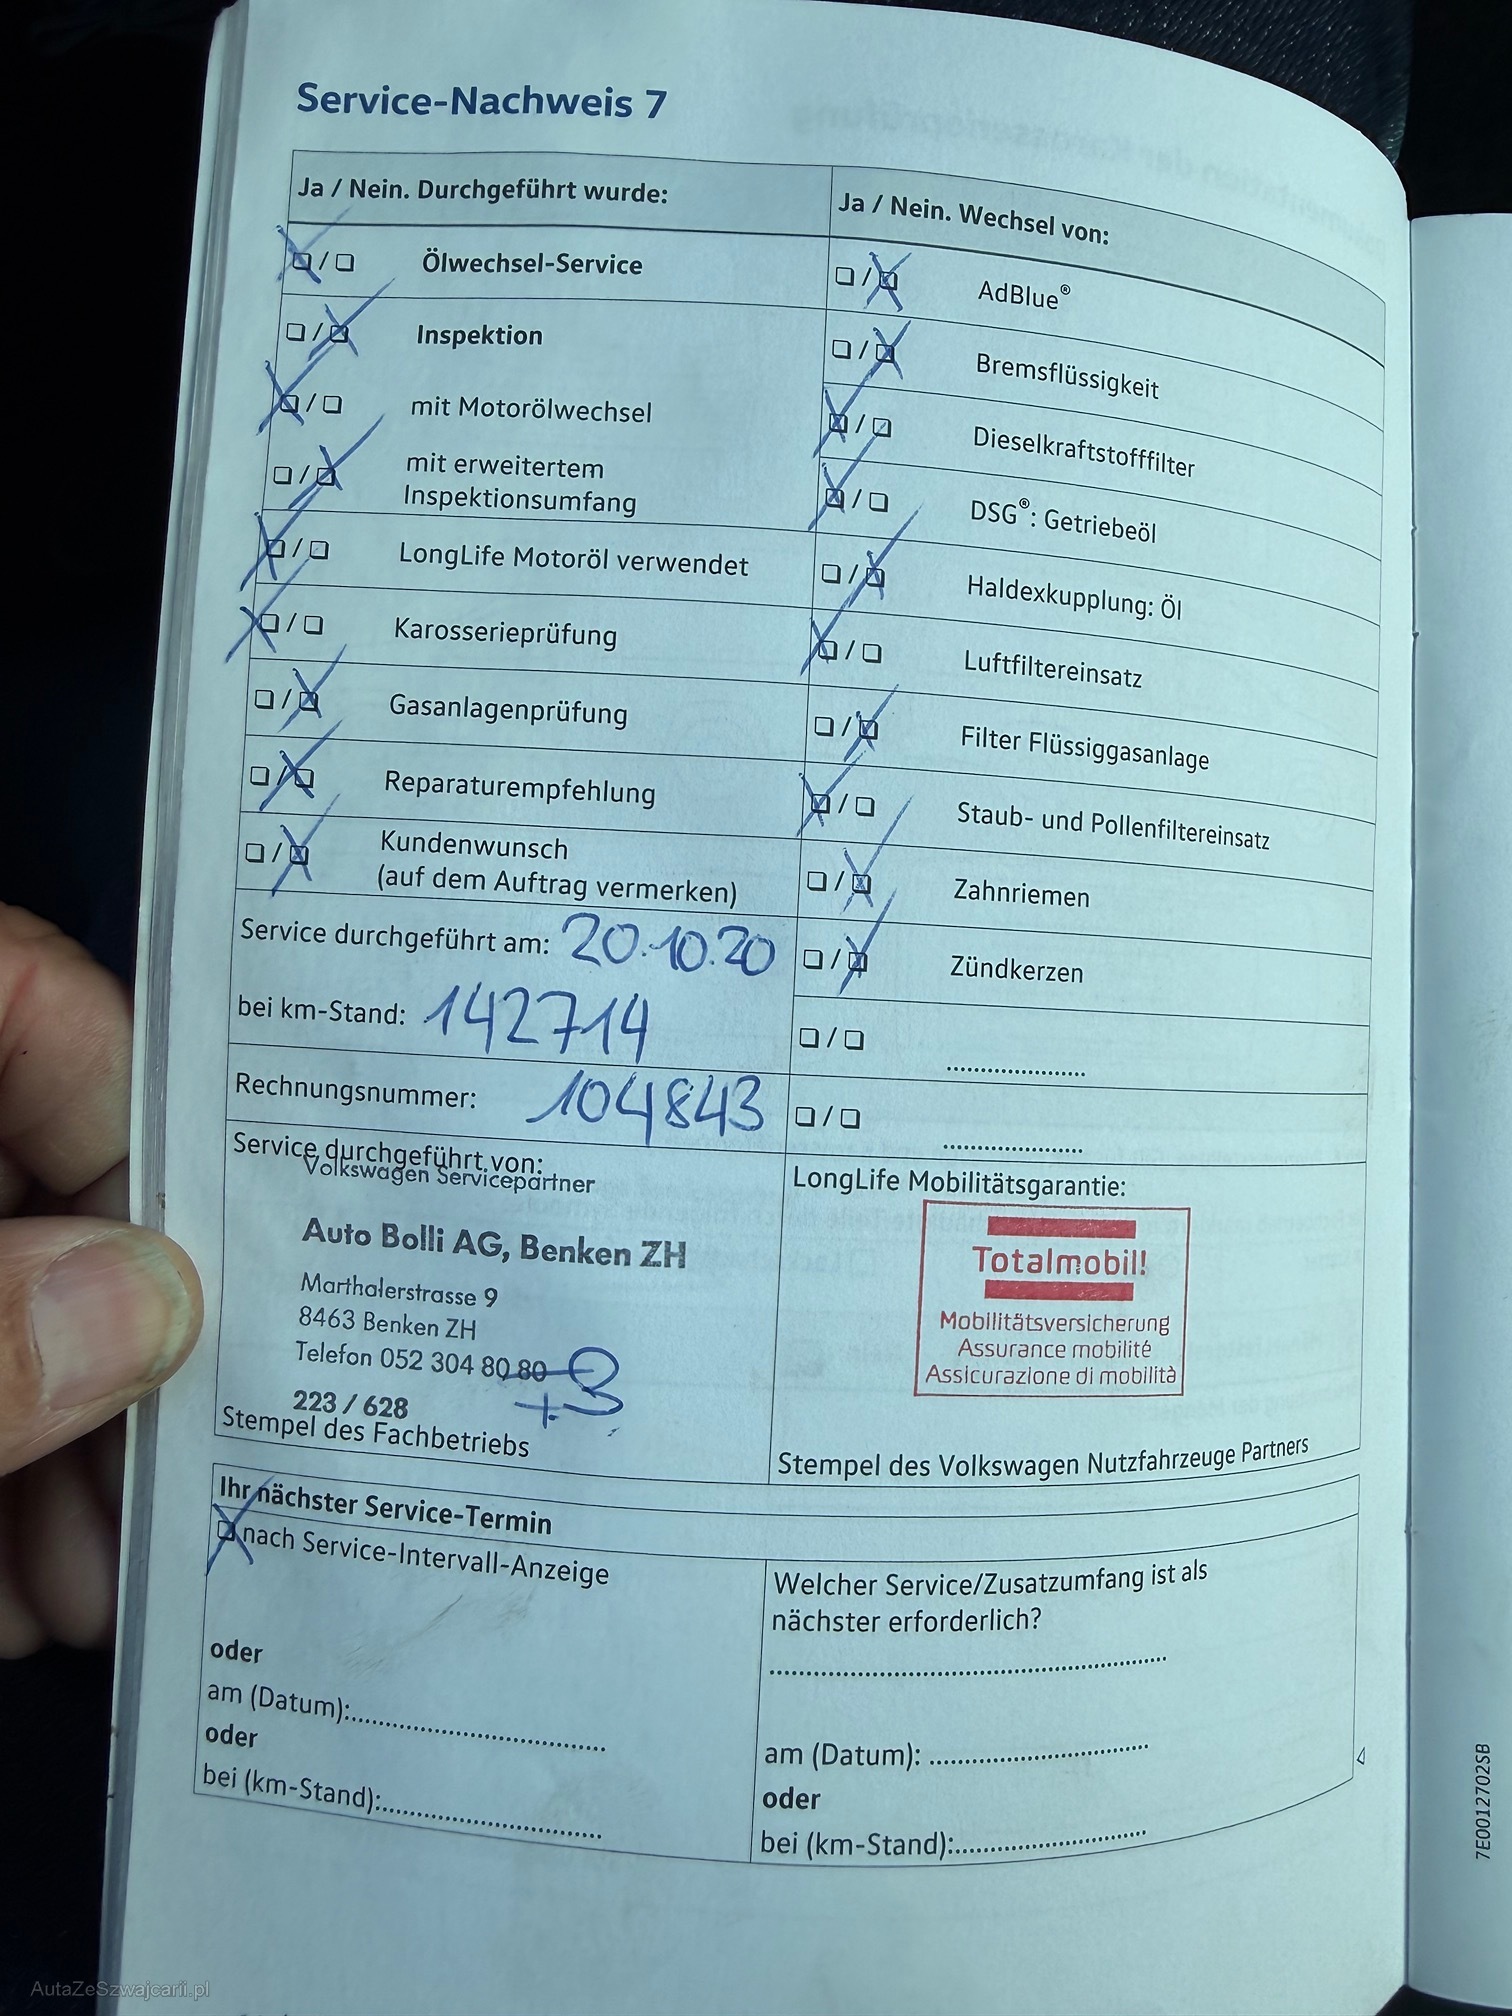 Service-Nachweis 7
Ja / Nein. Durchgeführt wurde:
Ölwechsel-Service
Inspektion
mit Motorölwechsel
mit erweitertem
Inspektionsumfang
LongLife Motoröl verwendet
Karosserieprüfung
Gasanlagenprüfung
Reparaturempfehlung
Kundenwunsch
(auf dem Auftrag vermerken)
Service durchgeführt am: 20.10.20
bei km-Stand: 142714
Rechnungsnummer: 104843
Ja / Nein. Wechsel von:
AdBlue®
Bremsflüssigkeit
Dieselkraftstofffilter
DSG®: Getriebeöl
Haldexkupplung: Öl
Luftfiltereinsatz
Filter Flüssiggasanlage
Staub- und Pollenfiltereinsatz
Zahnriemen
Zündkerzen
Service durchgeführt von:
Volkswagen Servicepartner
Auto Bolli AG, Benken ZH
Marthalerstrasse 9
8463 Benken ZH
Telefon 052 304 80 80
223 / 628
Stempel des Fachbetriebs
LongLife Mobilitätsgarantie:
Totalmobil!
Mobilitätsversicherung
Assurance mobilité
Assicurazione di mobilità
Stempel des Volkswagen Nutzfahrzeuge Partners
Ihr nächster Service-Termin
nach Service-Intervall-Anzeige
oder
am (Datum):
oder
bei (km-Stand):
Welcher Service/Zusatzumfang ist als
nächster erforderlich?
am (Datum):
oder
bei (km-Stand):
7E0012702SB
AutaZeSzwajcarii.pl